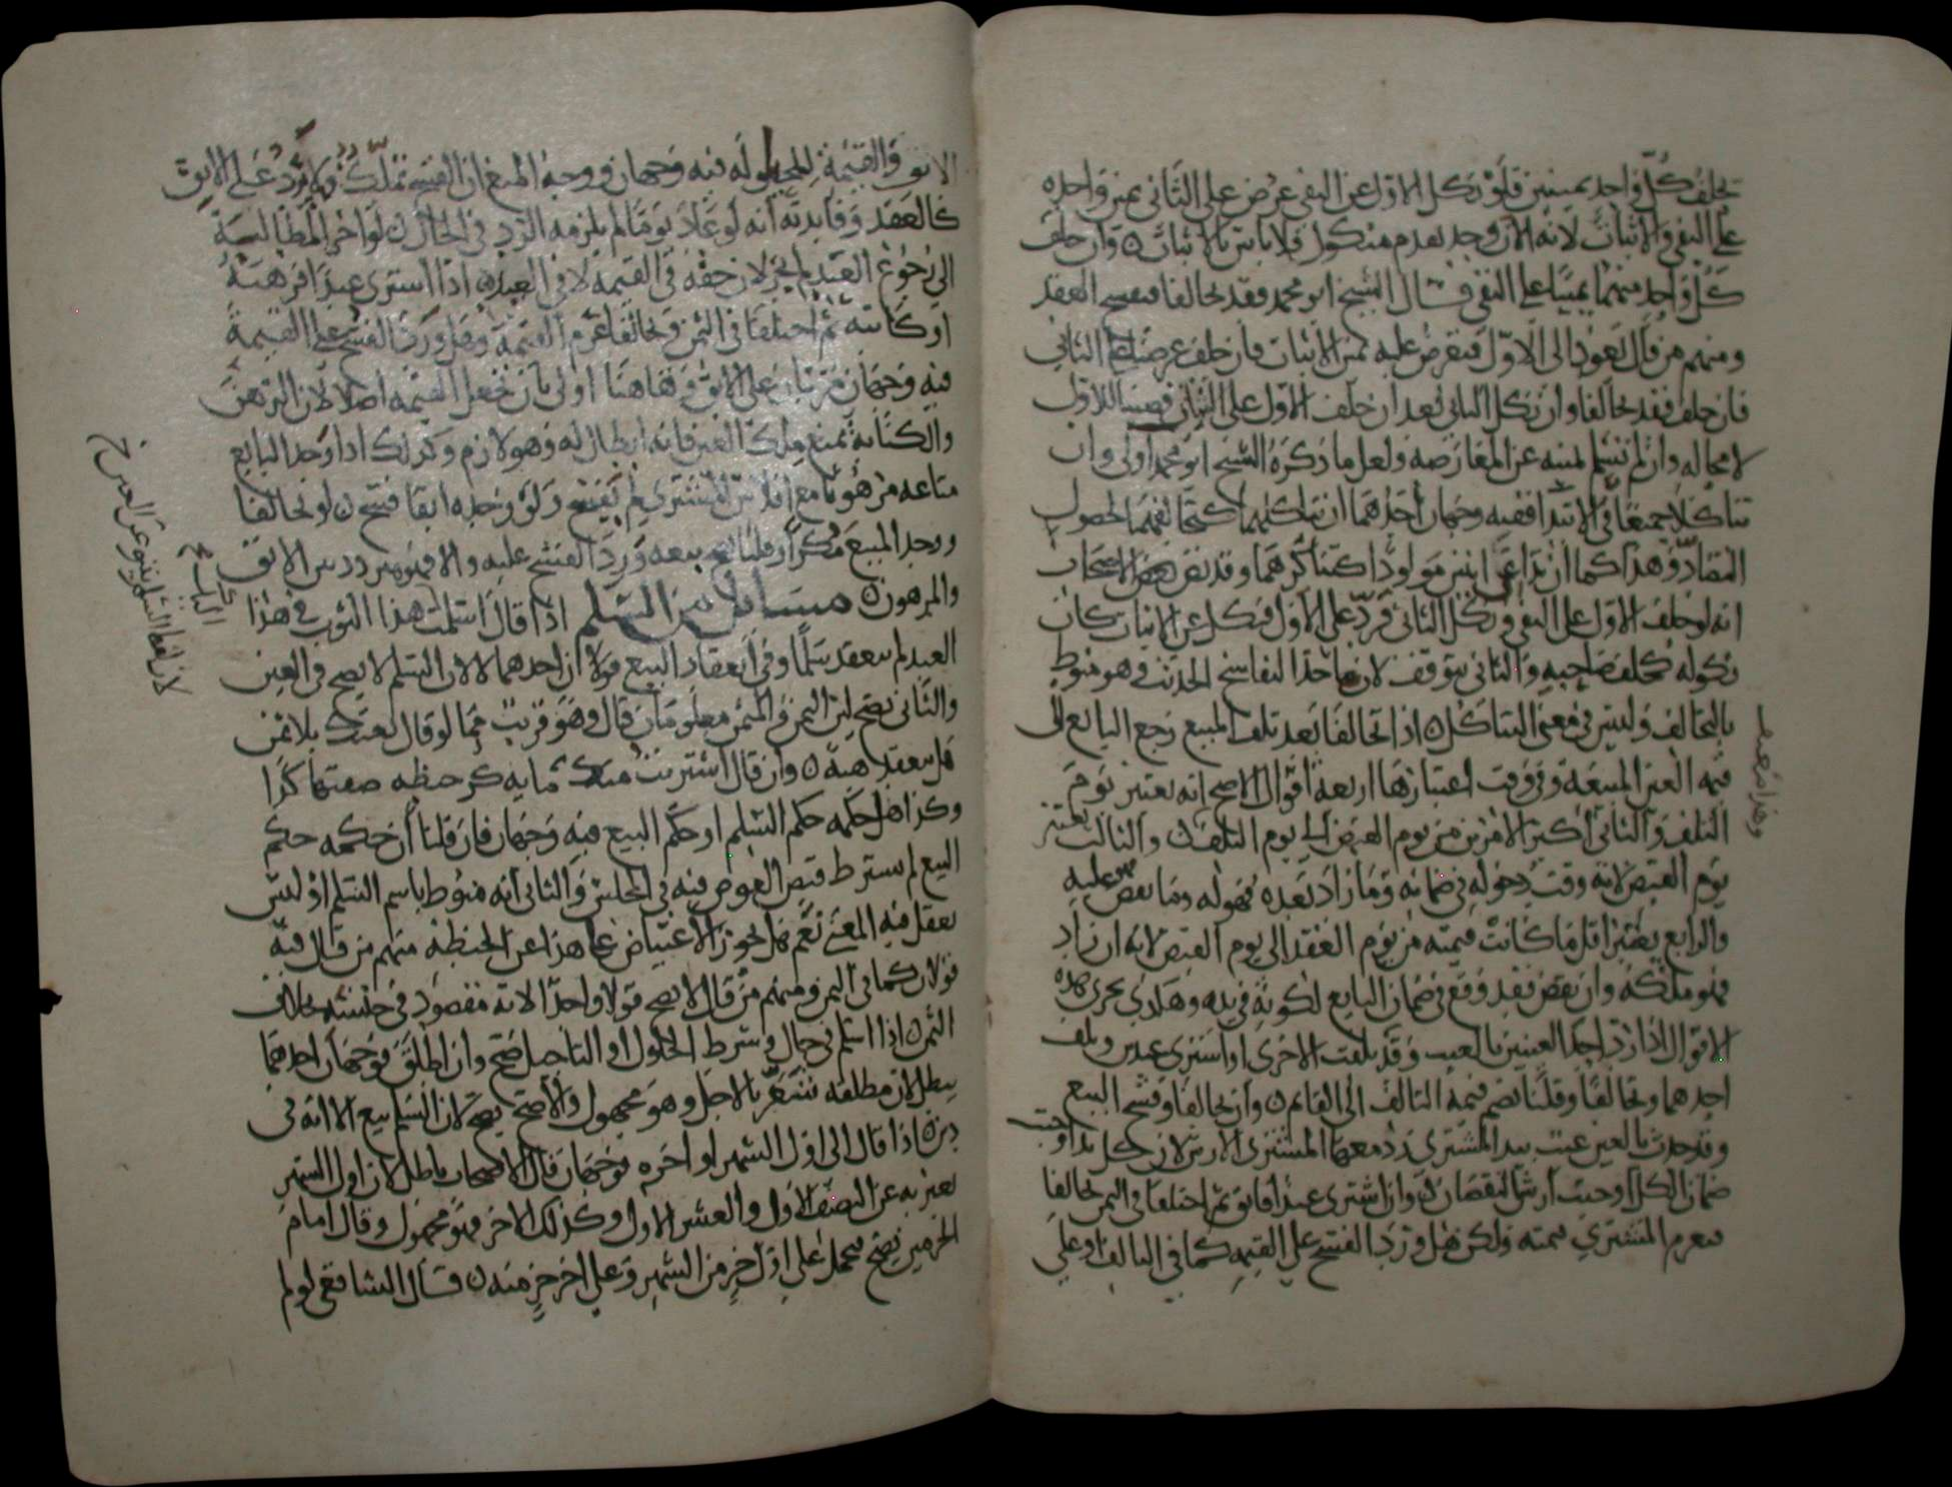 يحلف كل واحد يمينين فلو نكل الاول عن النفي عرض على الثاني يمين واحده
على النفي والاثبات لانه الآن وجد بعدم منكول فلا باس بالاثبات وان حلف
كل واحد منهما يمينا على النفي قال الشيخ ابو محمد فقد تحالفا فيفسخ العقد
ومنهم من قال نعود الى الاول فنعرض عليه يمين الاثبات فان حلف عرضنا على الثاني
فان حلف فقد تحالفا وان نكل الثاني بعد ان حلف الاول على الاثبات قضينا للاول
لا محاله وان لم نسلم لمنه عن المعارضه ولعل ما ذكره الشيخ ابو محمد اولى وان
تناكلا جميعا في الابتدا ففيه وجهان احدهما ان تناكلهما كتحالفهما لحصول
التضاد وهذا كما ان تداعى اثنين مولودا كتناكرهما وقد نص بعض الاصحاب
انه لو حلف الاول على النفي ونكل الثاني فرد على الاول فنكل عن الاثبات كان
نكوله كحلف صاحبه والثاني يتوقف لان ماخذ التفاسخ الحديث وهو منوط
بالتحالف وليس في معنى التناكل اذا تحالفا بعد تلف المبيع رجع البايع الى
قيمه العين المبيعة وفي وقت اعتبارها اربعة اقوال الاصح انه يعتبر يوم
التلف والثاني اكبر الامرين من يوم القبض الى يوم التلف والثالث يعتبر
يوم القبض لانه وقت دخوله في ضمانه وما زاد بعده فهو له وما نقص عليه
والرابع يعتبر اقل ما كانت قيمته من يوم العقد الى يوم القبض لانه ان زاد
فهو ملكه وان نقص فقد وقع في ضمان البايع لكونه في يده وهل تجري هذه
الاقوال اذا رد احد العينين بالعيب وقد تلفت الاخرى او اشترى عبدين وتلف
احدهما وتحالفا وقلنا نضم قيمة التالف الى القايم وان تحالفا وفسخ البيع
وقد حدث بالعين عيب بيد المشتري رد معها المشتري الارش لان كل يد اوجبت
ضمان الكل اوجبت ارش النقصان وان اشترى عبدا فابق ثم اختلفا في الثمن تحالفا
فيغرم المشتري قيمته ولكن هل ورد الفسخ على القيمه كما في التالف او على
الابق والقيمة للحيلوله فيه وجهان ووجه المنع ان الفسخ تملك ولا يرد على الابق
كالعقد وفايدته انه لو عاد يوما لم يلزمه الرد في الحال لو اخر المطالبة
الى رجوع العبد لم يجز لان حقه في القيمه لا في العبد اذا اشترى عبدا فرهنه
او كاتبه ثم اختلفا في الثمن وتحالفا غرم القيمة وهل ورد الفسخ على القيمة
فيه وجهان مرتبان على الابق وهاهنا اولى بان نجعل القيمه اصلا لان الرهن
والكتابة تمنع ملك العين فانه ابطال له وهو لازم وكذلك اذا وجد البايع
متاعه مرهونا مع افلاس المشتري لم يفسخ ولو وجده ابقا فسخ لو تحالفا
ووجد المبيع مكرا وقلنا يصح بيعه ورد الفسخ عليه والا فهو متردد بين الابق
والمرهون مسائل من السلم اذا قال اسلمت هذا الثوب في هذا
العبد لم ينعقد سلما وفي انعقاد البيع قولان احدهما لا لان السلم لا يصح في العين
والثاني يصح لان الثمن والمثمن معلومان قال وهو قريب مما لو قال بعتك بلا ثمن
هل ينعقد هبة وان قال اشتريت منك مايه كر حنطه صفتها كذا
وكذا هل حكمه حكم السلم او حكم البيع فيه وجهان فان قلنا ان حكمه حكم
البيع لم يشترط قبض العوض فيه في المجلس والثاني انه منوط باسم السلم او ليس
يعقل فيه المعنى نعم هل يجوز الاعتياض على هذا عن الحنطة منهم من قال فيه
قولان كما في الثمن ومنهم من قال لا يصح قولا واحدا لانه مقصود في جنسه بخلاف
الثمن اذا اسلم في حال وشرط الحلول او التاجيل صح وان اطلق فوجهان احدهما
يبطل لان مطلقه يشعر بالاجل وهو مجهول والاصح يصح لان السلم بيع الا انه في
دين اذا قال الى اول الشهر او اخره فوجهان قال الاصحاب باطل لان اول الشهر
يعبر به عن النصف الاول والعشر الاول وكذلك الاخر فهو مجهول وقال امام
الحرمين يصح فيحمل على اول جزء من الشهر وعلى اخر جزء منه قال الشافعي لو لم
لان لفظ السلم ينبو عن العين خ